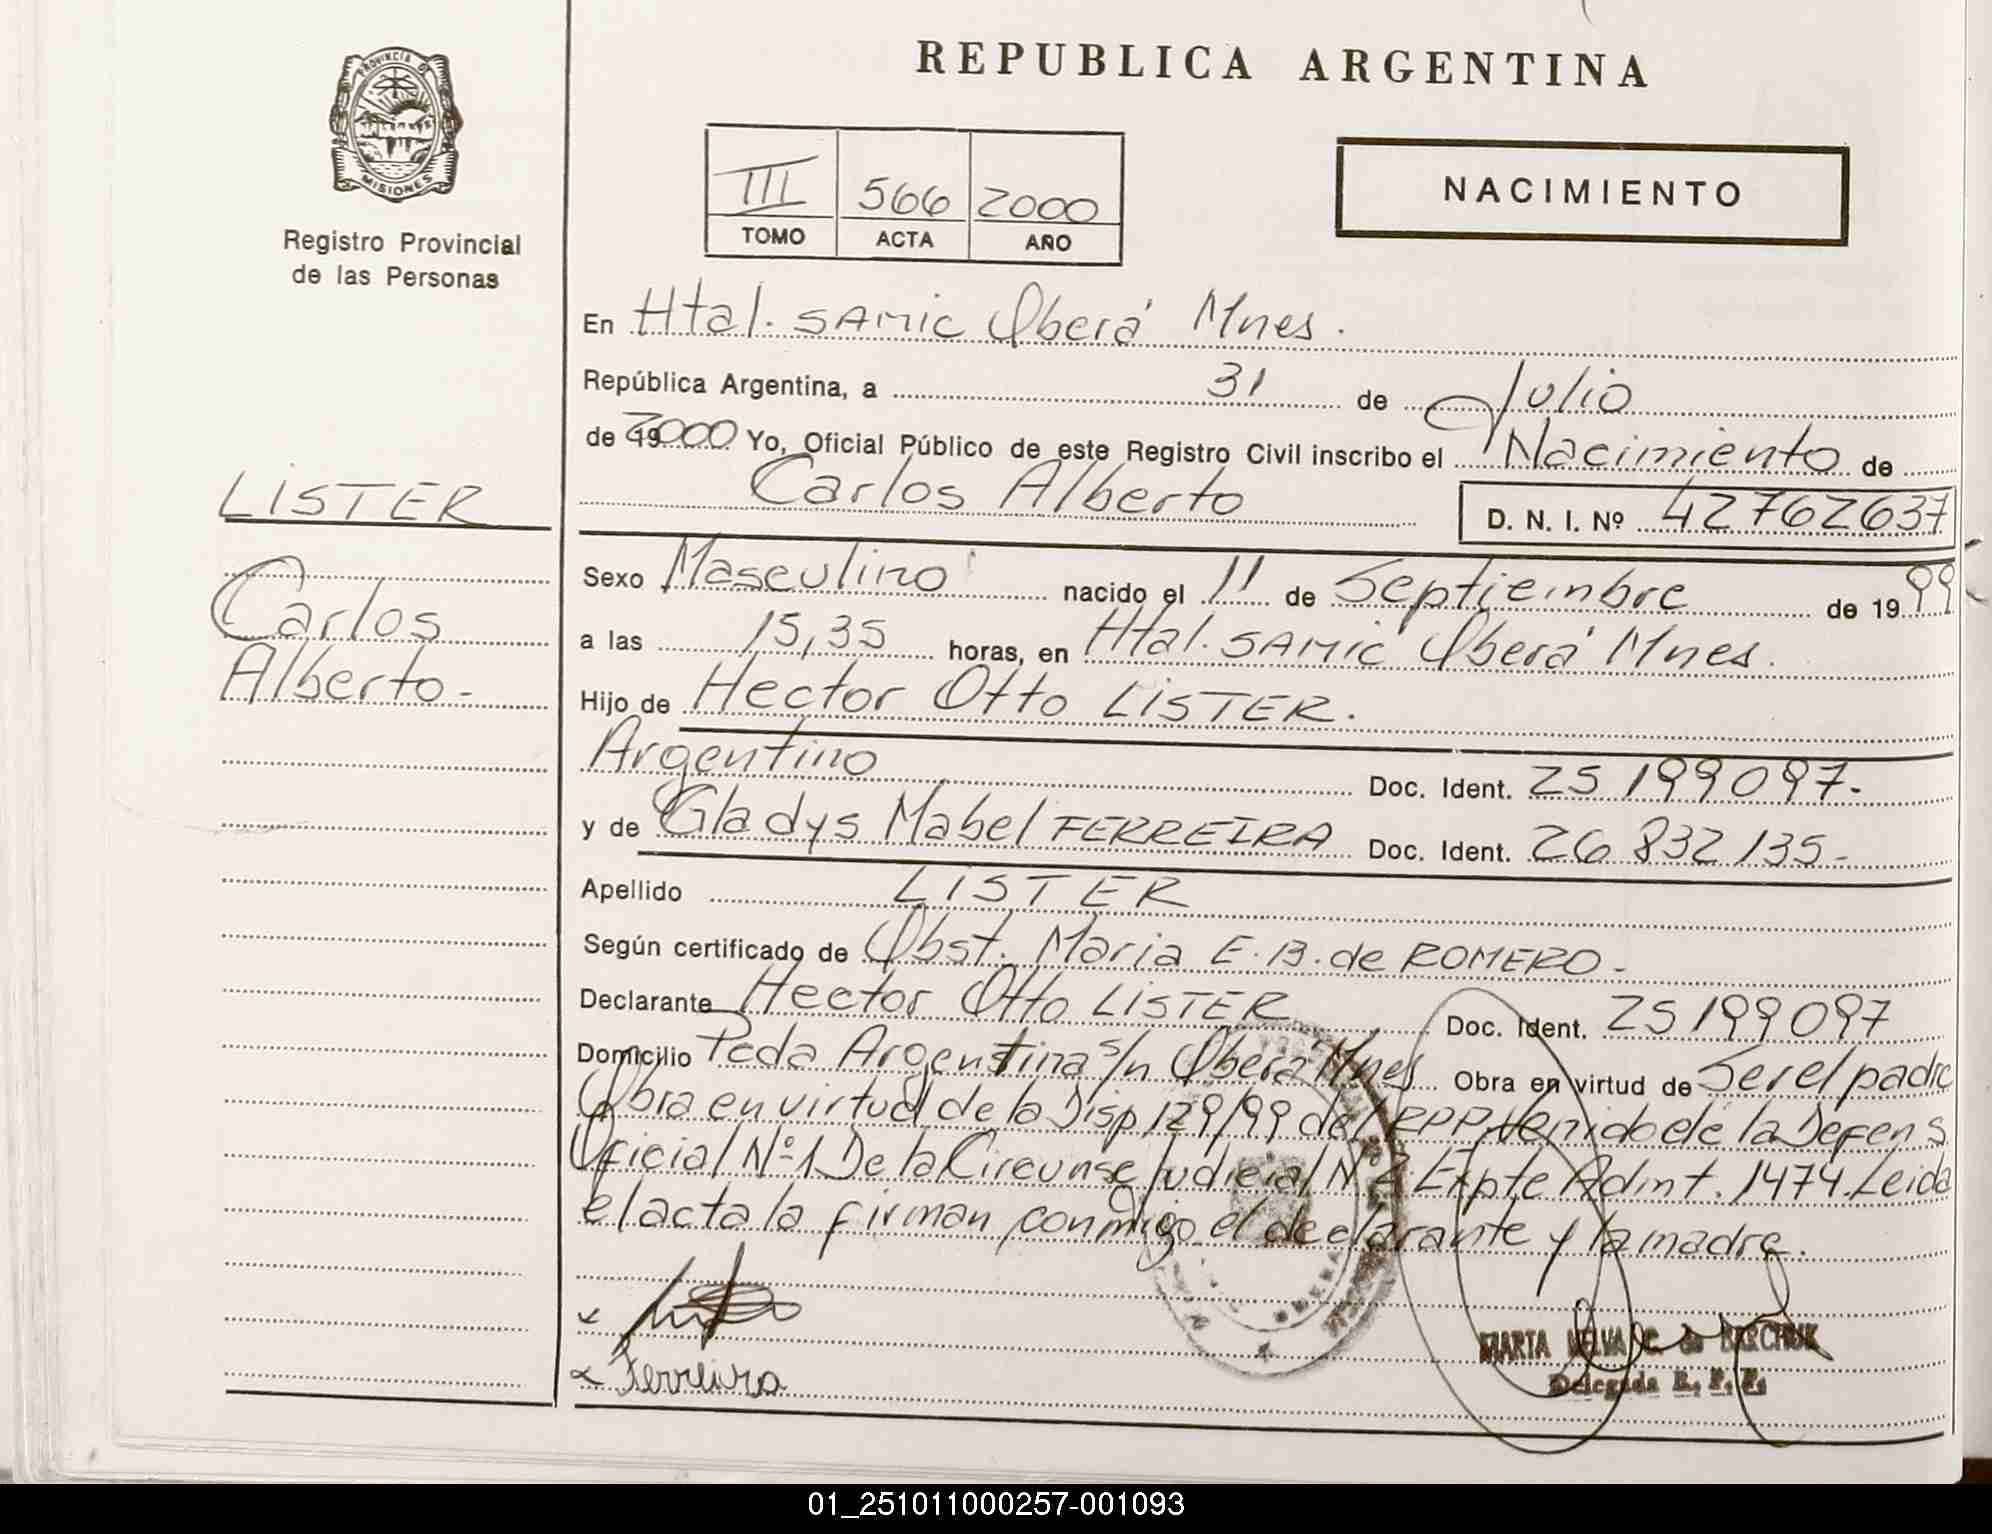 REPUBLICA ARGENTINA
PROVINCIA DE
MISIONES
Registro Provincial
de las Personas
III 566 2000
TOMO ACTA AÑO
NACIMIENTO
LISTER
Carlos
Alberto.-
En Htal. SAMIC Oberá Mnes.
República Argentina, a 31 de Julio
de 19 2000 Yo, Oficial Público de este Registro Civil inscribo el Nacimiento de
Carlos Alberto D. N. I. Nº 42762637
Sexo Masculino nacido el 11 de Septiembre de 19 99
a las 15,35 horas, en Htal. SAMIC Oberá Mnes.
Hijo de Hector Otto LISTER.
Argentino Doc. Ident. 25 199 097.
y de Gladys Mabel FERREIRA Doc. Ident. 26 832 135-
Apellido LISTER
Según certificado de Obst. Maria E. B. de ROMERO-
Declarante Hector Otto LISTER Doc. Ident. 25 199 097
Domicilio Pcda Argentina s/n Oberá Mnes Obra en virtud de Ser el padre
Obra en virtud de la Disp 129/99 del RPP, venido de la Defens
Oficial Nº 1 De la Circunsc Judicial Nº 2 Expte Admt. 1474. Leida
el acta la firman conmigo el declarante y la madre.
Ferreira
MARTA C. de
Delegada R. P. P.
01_251011000257-001093